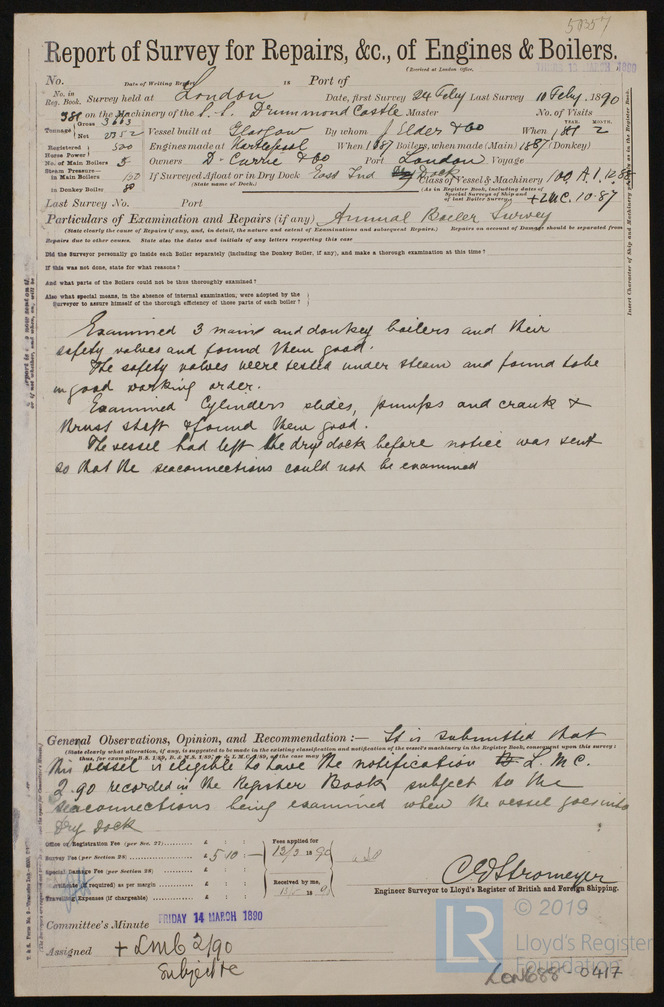 50357
Report of Survey for Repairs, &c., of Engines & Boilers.
(Received at London Office,
THURS 13 MARCH 1890
No. Date of Writing Report 18 Port of
No. in Reg. Book. Survey held at London Date, first Survey 24 Feby Last Survey 10 Feby. 1890
381 on the Machinery of the S.S. Drummond Castle Master No. of Visits
Tonnage Gross 3663 Net 2352 Vessel built at Glasgow By whom J. Elder & Co When YEAR. 1881 MONTH. 2
Registered Horse Power 500 Engines made at Hartlepool When 1887 Boilers, when made (Main) 1887 (Donkey)
No. of Main Boilers Owners D. Currie & Co Port London Voyage
Steam Pressure— in Main Boilers 150 If Surveyed Afloat or in Dry Dock East Ind Dock Class of Vessel & Machinery 100 A.1. 12.88
in Donkey Boiler 80 (State name of Dock.) (As in Register Book, including dates of Special Surveys of Ship and of last Boiler Survey.) + LMC. 10.87
Last Survey No. Port
Particulars of Examination and Repairs (if any) Annual Boiler Survey
(State clearly the cause of Repairs if any, and, in detail, the nature and extent of Examinations and subsequent Repairs.) Repairs on account of Damage should be separated from
Repairs due to other causes. State also the dates and initials of any letters respecting this case
Did the Surveyor personally go inside each Boiler separately (including the Donkey Boiler, if any), and make a thorough examination at this time?
If this was not done, state for what reasons?
And what parts of the Boilers could not be thus thoroughly examined?
Also what special means, in the absence of internal examination, were adopted by the
Surveyor to assure himself of the thorough efficiency of those parts of each boiler?
Examined 3 main and donkey boilers and their
safety valves and found them good.
The safety valves were tested under steam and found to be
in good working order.
Examined Cylinders slides, pumps and crank &
thrust shaft & found them good.
The vessel had left the dry dock before notice was sent
so that the seaconnections could not be examined
Insert Character of Ship and Machinery precisely as in the Register Book.
General Observations, Opinion, and Recommendation:— It is submitted that
(State clearly what alteration, if any, is suggested to be made in the existing classification and notification of the vessel's machinery in the Register Book, consequent upon this survey:
this vessel is eligible to have the notification L.M.C.
2.90 recorded in the Register Book subject to the
seaconnections being examined when the vessel goes into
dry dock
Office or Registration Fee (per Sec. 27) £ : : Fees applied for
Survey Fee (per Section 28) £ 5 10 : 13/3 1890
Special Damage Fee (per Section 28) £ : :
Certificate (if required) as per margin £ : : Received by me,
Travelling Expenses (if chargeable) £ : :
C E Stromeyer
Engineer Surveyor to Lloyd's Register of British and Foreign Shipping.
Committee's Minute FRIDAY 14 MARCH 1890
Assigned + LMC 2/90
Subject &c
© 2019
LR
Lloyd's Register
Foundation
LON688-0417